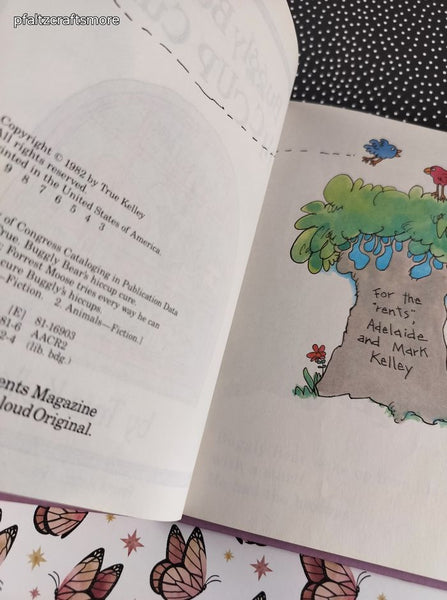 pfaltzcraftsmore
Copyright © 1982 by True Kelley
All rights reserved.
rinted in the United States of America.
9 8 7 6 5 4 3
of Congress Cataloging in Publication Data
rue. Buggly Bear's hiccup cure.
Forrest Moose tries every way he can
cure Buggly's hiccups.
—Fiction. 2. Animals—Fiction.]
[E] 81-16903
81-6 AACR2
2-4 (lib. bdg.)
ents Magazine
loud Original.
For the
"rents",
Adelaide
and Mark
Kelley